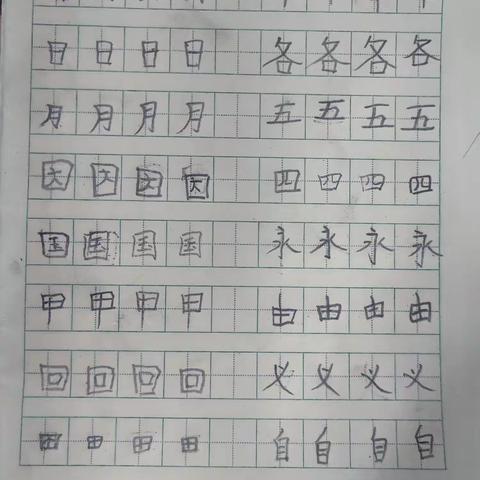 日 日 日 日 各 各 各 各
月 月 月 月 五 五 五 五
因 因 因 因 四 四 四 四
国 国 国 国 永 永 永 永
甲 甲 甲 甲 由 由 由 由
回 回 回 回 义 义 义 义
田 田 田 田 自 自 自 自